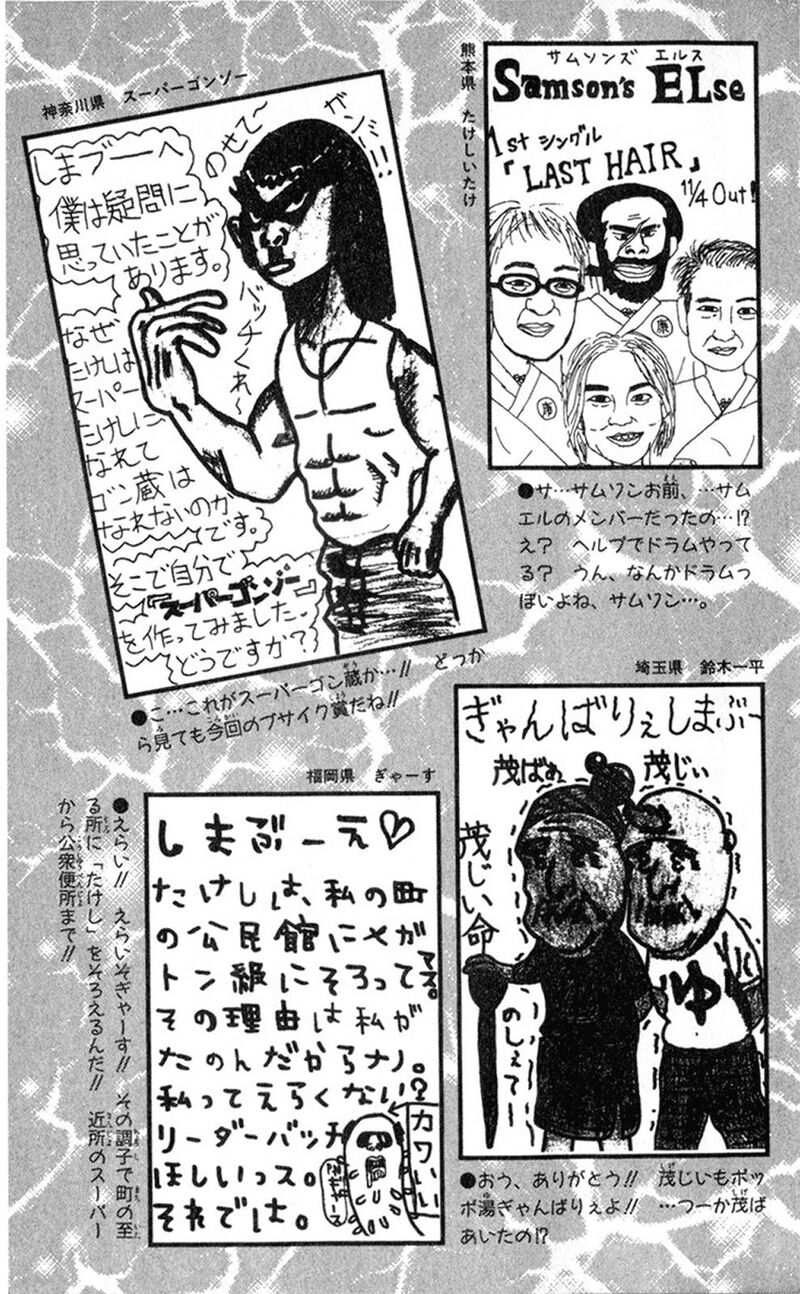 熊本県 たけしいたけ
サムソンズ エルス
Samson's ELse
1st シングル
「LAST HAIR」
11/4 Out!
●サ…サムソンお前、…サム
エルのメンバーだったの…!?
え? ヘルプでドラムやって
る? うん、なんかドラムっ
ぽいよね、サムソン…。
神奈川県 スーパーゴンゾー
しまブーへ
僕は疑問に
思っていたことが
あります。
なぜ
たけしは
スーパー
たけしに
なれて
ゴン蔵は
なれないのか
です。
そこで自分で
『スーパーゴンゾー』
を作ってみました。
どうですか?
のせて〜
ガンシニ!!
バッチくれ〜
●こ…これがスーパーゴン蔵か…!! どっか
ら見ても今回のブサイク賞だね!!
埼玉県 鈴木一平
ぎゃんばりぇしまぶー
茂ばぁ
茂じぃ
茂じい命
のしぇてー
ゆ
●おう、ありがとう!! 茂じいもポッ
ポ湯ぎゃんばりぇよ!! …つーか茂ば
あいたの!?
福岡県 ぎゃーす
しまぶーえ♡
たけしは、私の町
の公民館にメガ
トン級にそろって
マス。
その理由は私が
たのんだからナノ。
私ってえらくない?
リーダーバッチ
ほしいっス。
それでは。
カワいい
P.N.ぎゃーす
●えらい!! えらいぞぎゃーす!! その調子で町の至
る所に「たけし」をそろえるんだ!! 近所のスーパー
から公衆便所まで!!